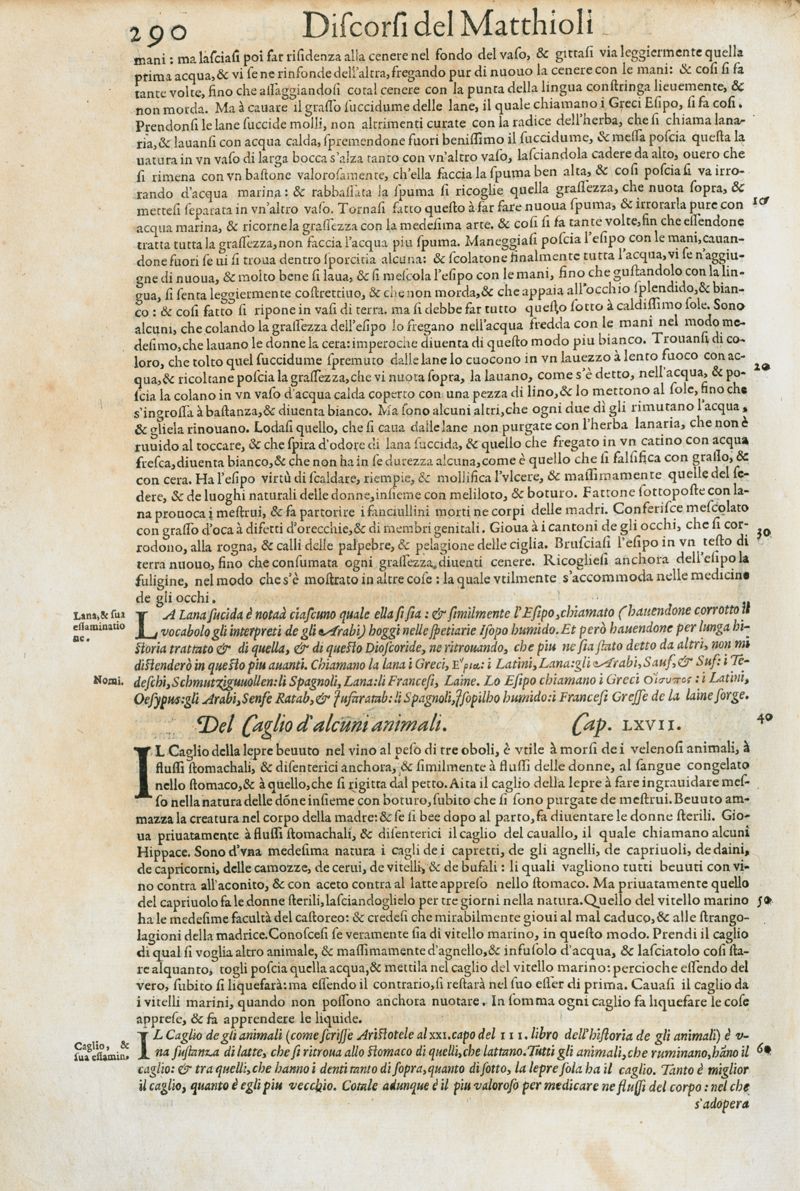 290 Diſcorſi del Matthioli
mani: ma laſciaſi poi far riſidenza alla cenere nel fondo del vaſo, & gittaſi via leggiermente quella
prima acqua, & vi ſe ne rinfonde dell'altra, fregando pur di nuouo la cenere con le mani: & coſi ſi fa
tante volte, fino che aſſaggiandoſi cotal cenere con la punta della lingua conſtringa lieuemente, &
non morda. Ma à cauare il graſſo ſuccidume delle lane, il quale chiamano i Greci Eſipo, ſi fa coſi.
Prendonſi le lane ſuccide molli, non altrimenti curate con la radice dell'herba, che ſi chiama lana-
ria, & lauanſi con acqua calda, ſpremendone fuori beniſſimo il ſuccidume, & meſſa poſcia queſta la
uatura in vn vaſo di larga bocca s'alza tanto con vn'altro vaſo, laſciandola cadere da alto, ouero che
ſi rimena con vn baſtone valoroſamente, ch'ella faccia la ſpuma ben alta, & coſi poſcia ſi va irro-
rando d'acqua marina: & rabbaſſata la ſpuma ſi ricoglie quella graſſezza, che nuota ſopra, &
metteſi ſeparata in vn'altro vaſo. Tornaſi fatto queſto à far fare nuoua ſpuma, & irrorarla pure con 10
acqua marina, & ricorne la graſſezza con la medeſima arte, & coſi ſi fa tante volte, fin che eſſendone
tratta tutta la graſſezza, non faccia l'acqua piu ſpuma. Maneggiaſi poſcia l'eſipo con le mani, cauan-
done fuori ſe ui ſi troua dentro ſporcitia alcuna: & ſcolatone finalmente tutta l'acqua, vi ſe n'aggiu-
gne di nuoua, & molto bene ſi laua, & ſi meſcola l'eſipo con le mani, fino che guſtandolo con la lin-
gua, ſi ſenta leggiermente coſtrettiuo, & che non morda, & che appaia all'occhio ſplendido, & bian-
co: & coſi fatto ſi ripone in vaſi di terra. ma ſi debbe far tutto queſto ſotto à caldiſſimo ſole. Sono
alcuni, che colando la graſſezza dell'eſipo lo fregano nell'acqua fredda con le mani nel modo me-
deſimo, che lauano le donne la cera: imperoche diuenta di queſto modo piu bianco. Trouanſi di co-
loro, che tolto quel ſuccidume ſpremuto dalle lane lo cuocono in vn lauezzo à lento fuoco con ac-
qua, & ricoltane poſcia la graſſezza, che vi nuota ſopra, la lauano, come s'è detto, nell'acqua, & po- 20
ſcia la colano in vn vaſo d'acqua calda coperto con una pezza di lino, & lo mettono al ſole, fino che
s'ingroſſa à baſtanza, & diuenta bianco. Ma ſono alcuni altri, che ogni due dì gli rimutano l'acqua,
& gliela rinouano. Lodaſi quello, che ſi caua dalle lane non purgate con l'herba lanaria, che non è
ruuido al toccare, & che ſpira d'odore di lana ſuccida, & quello che fregato in vn catino con acqua
freſca, diuenta bianco, & che non ha in ſe durezza alcuna, come è quello che ſi falſifica con graſſo, &
con cera. Ha l'eſipo virtù di ſcaldare, riempie, & mollifica l'vlcere, & maſſimamente quelle del ſe-
dere, & de luoghi naturali delle donne, inſieme con meliloto, & boturo. Fattone ſottopoſte con la-
na prouoca i meſtrui, & fa partorire i fanciullini morti ne corpi delle madri. Conferiſce meſcolato
con graſſo d'oca à difetti d'orecchie, & di membri genitali. Gioua à i cantoni de gli occhi, che ſi cor-
rodono, alla rogna, & calli delle palpebre, & pelagione delle ciglia. Bruſciaſi l'eſipo in vn teſto di 30
terra nuouo, fino che conſumata ogni graſſezza, diuenti cenere. Ricoglieſi anchora dell'eſipo la
fuligine, nel modo che s'è moſtrato in altre coſe: la quale vtilmente s'accommoda nelle medicine
de gli occhi.
Lana, & ſua
eſſaminatio
ne.
LA Lana ſucida è nota à ciaſcuno quale ella ſi ſia: & ſimilmente l'Eſipo, chiamato (hauendone corrotto il
vocabolo gli interpreti de gli Arabi) hoggi nelle ſpetiarie Iſopo humido. Et però hauendone per lunga hi-
ſtoria trattato & di quella, & di queſto Dioſcoride, ne ritrouando, che piu ne ſia ſtato detto da altri, non mi
diſtenderò in queſto piu auanti. Chiamano la lana i Greci, Ἔρια: i Latini, Lana: gli Arabi, Sauf, & Suf: i Te-
Nomi.
deſchi, Schmutziguuollen: li Spagnoli, Lana: li Franceſi, Laine. Lo Eſipo chiamano i Greci Οἴσυπος: i Latini,
Oeſypus: gli Arabi, Senſe Ratab, & Iuſaratab: li Spagnoli, Iſopilho humido: i Franceſi Greſſe de la laine ſorge.
Del Caglio d'alcuni animali. Cap. LXVII. 40
IL Caglio della lepre beuuto nel vino al peſo di tre oboli, è vtile à morſi de i velenoſi animali, à
fluſſi ſtomachali, & diſenterici anchora, & ſimilmente à fluſſi delle donne, al ſangue congelato
nello ſtomaco, & à quello, che ſi rigitta dal petto. Aita il caglio della lepre à fare ingrauidare meſ-
ſo nella natura delle dōne inſieme con boturo, ſubito che ſi ſono purgate de meſtrui. Beuuto am-
mazza la creatura nel corpo della madre: & ſe ſi bee dopo al parto, fa diuentare le donne ſterili. Gio-
ua priuatamente à fluſſi ſtomachali, & diſenterici il caglio del cauallo, il quale chiamano alcuni
Hippace. Sono d'vna medeſima natura i cagli de i capretti, de gli agnelli, de capriuoli, de daini,
de capricorni, delle camozze, de cerui, de vitelli, & de bufali: li quali vagliono tutti beuuti con vi-
no contra all'aconito, & con aceto contra al latte appreſo nello ſtomaco. Ma priuatamente quello
del capriuolo fa le donne ſterili, laſciandoglielo per tre giorni nella natura. Quello del vitello marino 50
ha le medeſime facultà del caſtoreo: & credeſi che mirabilmente gioui al mal caduco, & alle ſtrango-
lagioni della madrice. Conoſceſi ſe veramente ſia di vitello marino, in queſto modo. Prendi il caglio
di qual ſi voglia altro animale, & maſſimamente d'agnello, & infuſolo d'acqua, & laſciatolo coſi ſta-
re alquanto, togli poſcia quella acqua, & mettila nel caglio del vitello marino: percioche eſſendo del
vero, ſubito ſi liquefarà: ma eſſendo il contrario, ſi reſtarà nel ſuo eſſer di prima. Cauaſi il caglio da
i vitelli marini, quando non poſſono anchora nuotare. In ſomma ogni caglio fa liquefare le coſe
appreſe, & fa apprendere le liquide.
Caglio, &
ſua eſſamin.
IL Caglio de gli animali (come ſcriſſe Ariſtotele al XXI. capo del III. libro dell'hiſtoria de gli animali) è v-
na ſuſtanza di latte, che ſi ritroua allo ſtomaco di quelli, che lattano. Tutti gli animali, che ruminano, hāno il 60
caglio: & tra quelli, che hanno i denti tanto di ſopra, quanto di ſotto, la lepre ſola ha il caglio. Tanto è miglior
il caglio, quanto è egli piu vecchio. Cotale adunque è il piu valoroſo per medicare ne fluſſi del corpo: nel che
s'adopera